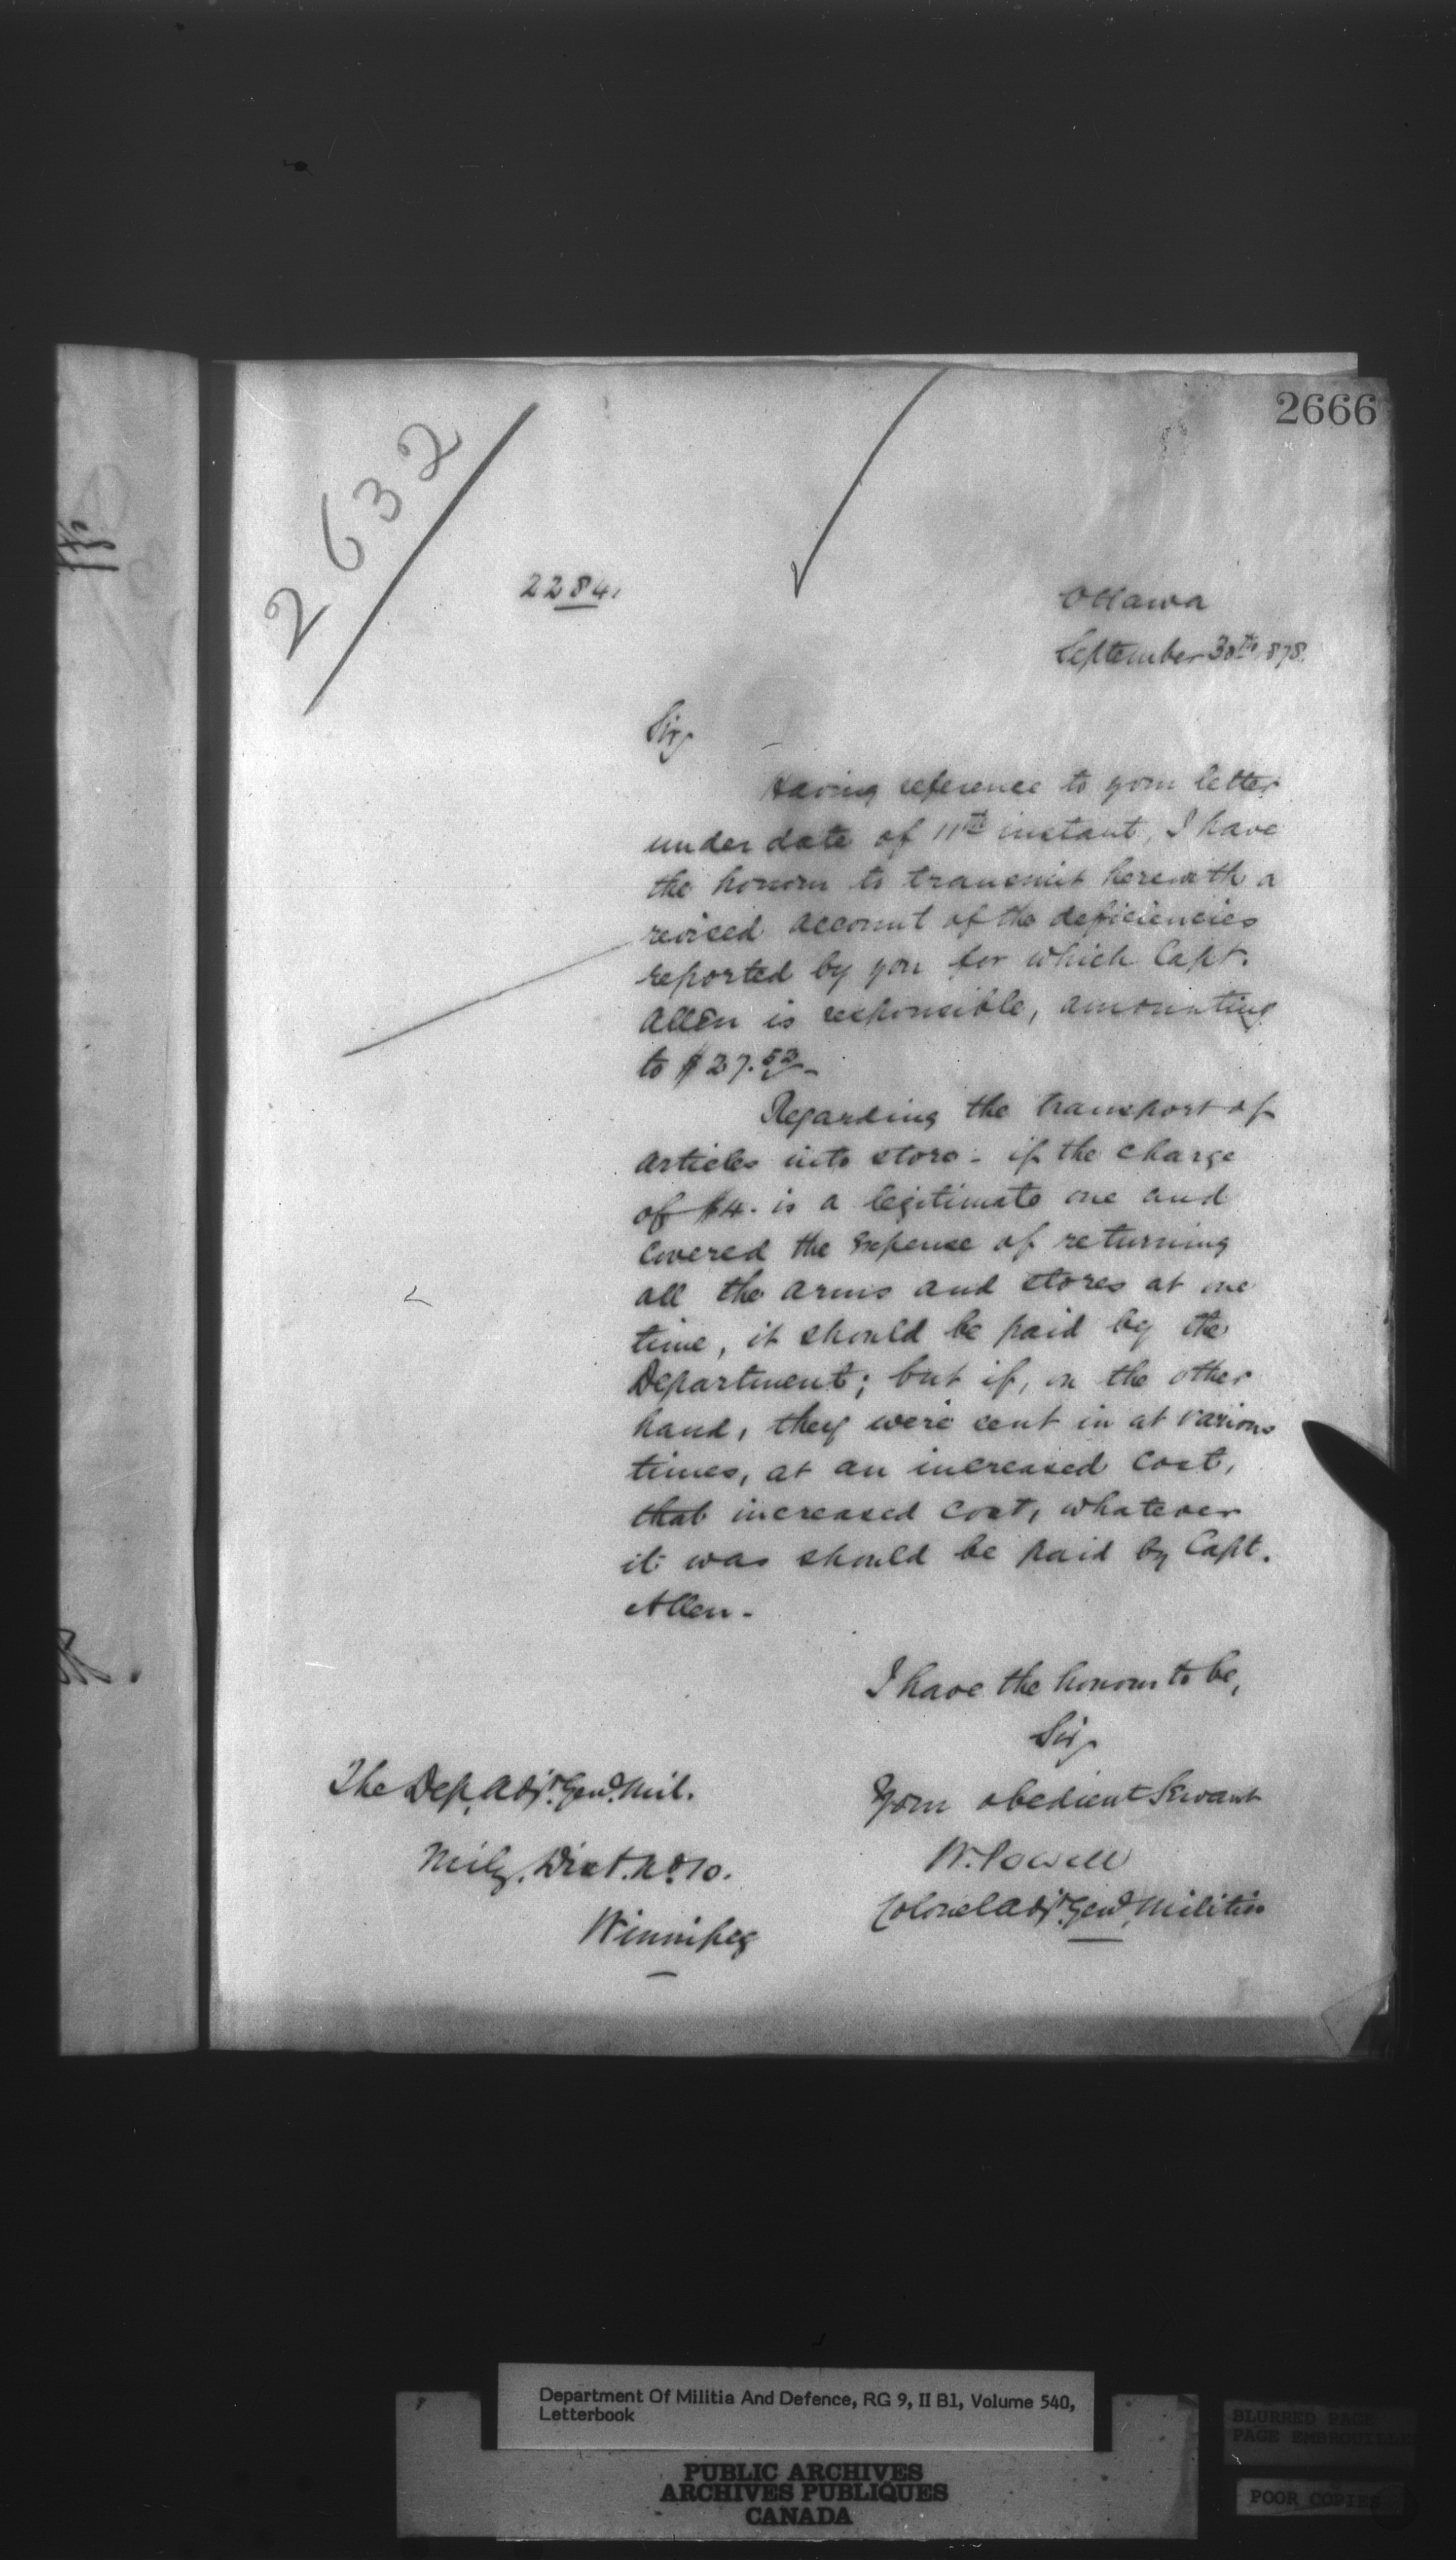 2666
2632
2284.
Ottawa
September 30th 1878.
Sir,
Having reference to your letter
under date of 11th instant, I have
the honour to transmit herewith a
revised account of the deficiencies
reported by you for which Capt.
Allen is responsible, amounting
to $27.53 -
Regarding the transport of
articles into store - if the charge
of $4. is a legitimate one and
covered the expense of returning
all the arms and stores at one
time, it should be paid by the
Department; but if, on the other
hand, they were sent in at various
times, at an increased cost,
that increased cost, whatever
it was should be paid by Capt.
Allen -
I have the honour to be,
Sir,
Your obedient Servant
W. Powell
Colonel Adjt. Genl. Militia
The Dep. Adjt. Genl. Mil.
Mily. Dist. No. 10.
Winnipeg
Department Of Militia And Defence, RG 9, II B1, Volume 540,
Letterbook
PUBLIC ARCHIVES
ARCHIVES PUBLIQUES
CANADA
BLURRED PAGE
PAGE EMBROUILLEE
POOR COPIES